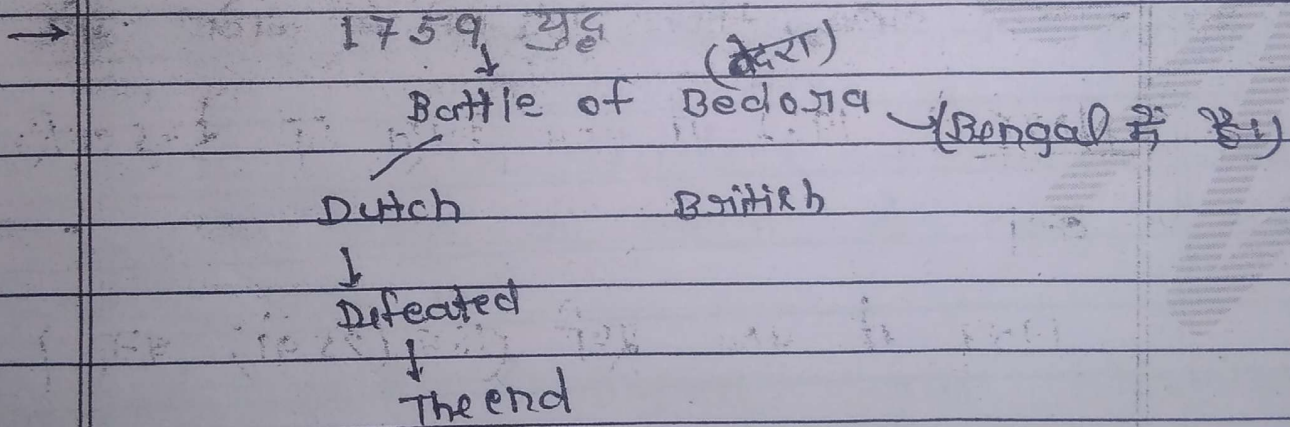 → 1759 युद्ध
↓ (बेदरा)
Battle of Bedora (Bengal में है।)
Dutch British
↓
Defeated
↓
The end